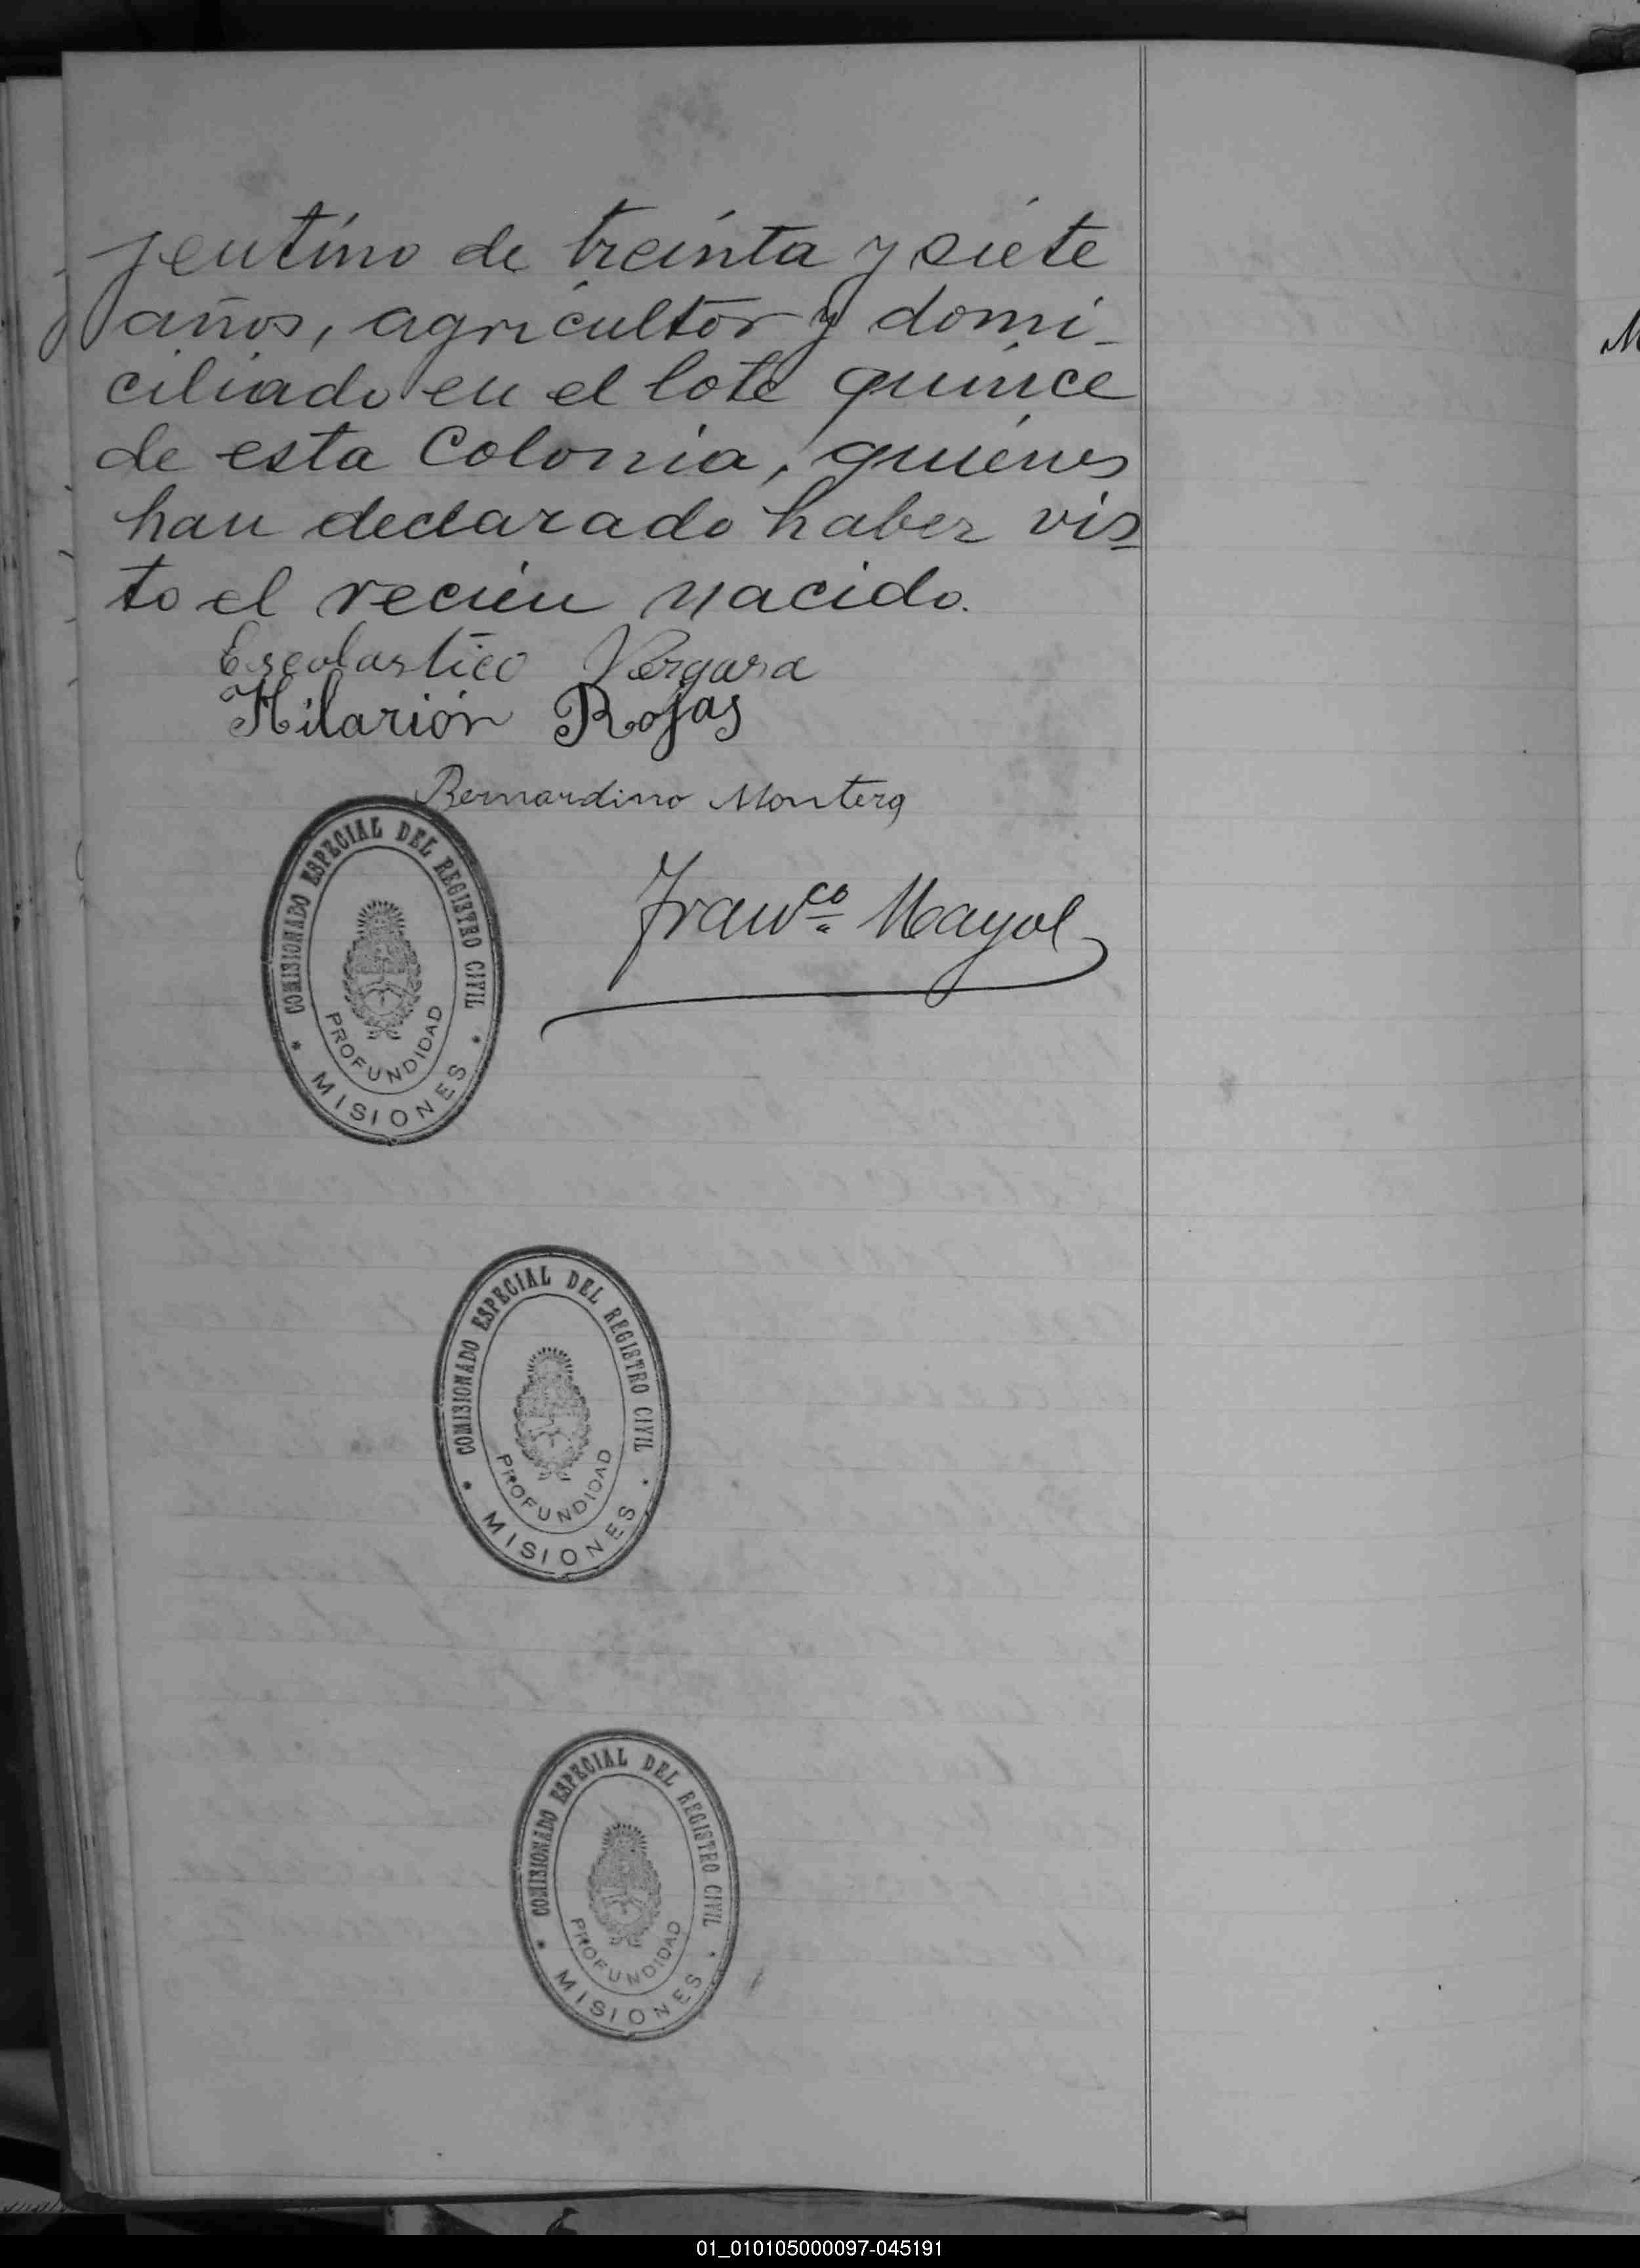 gentino de treinta y siete
años, agricultor y domi-
ciliado en el lote quince
de esta Colonia, quienes
han declarado haber vis-
to el recien nacido.
Escolastico Vergara
Hilarión Rojas
Bernardino Montero
Franco. Mayol
COMISIONADO ESPECIAL DEL REGISTRO CIVIL
PROFUNDIDAD
* MISIONES *
COMISIONADO ESPECIAL DEL REGISTRO CIVIL
PROFUNDIDAD
* MISIONES *
COMISIONADO ESPECIAL DEL REGISTRO CIVIL
PROFUNDIDAD
* MISIONES *
01_010105000097-045191